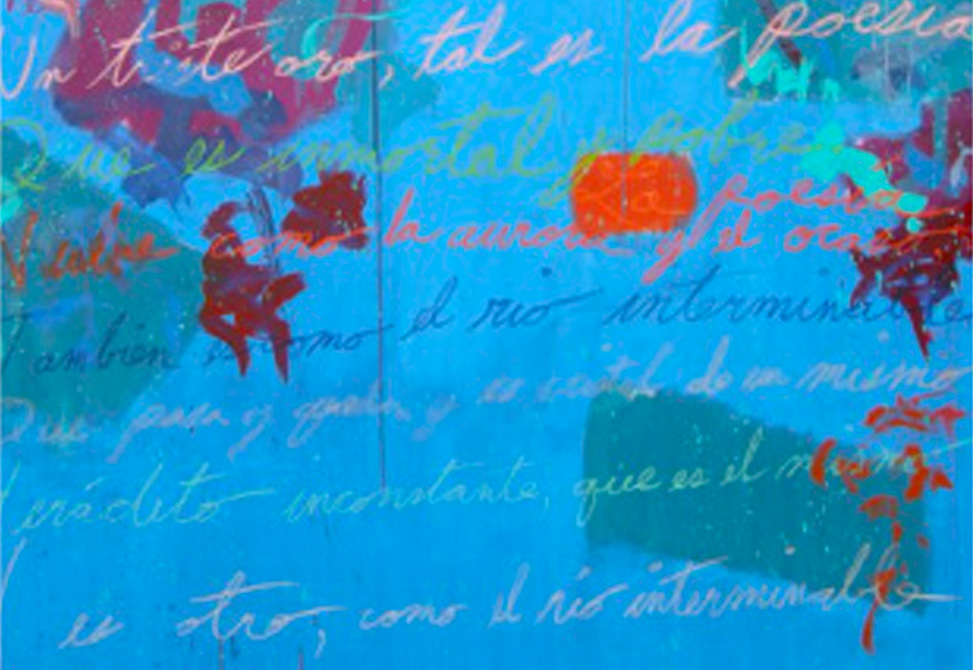 Un triste oro, tal es la poesía
Que es inmortal y pobre. La poesía
Vuelve como la aurora y el ocaso
También es como el río interminable
Que pasa y queda y es cristal de un mismo
Heráclito inconstante, que es el mismo
Y es otro, como el río interminable